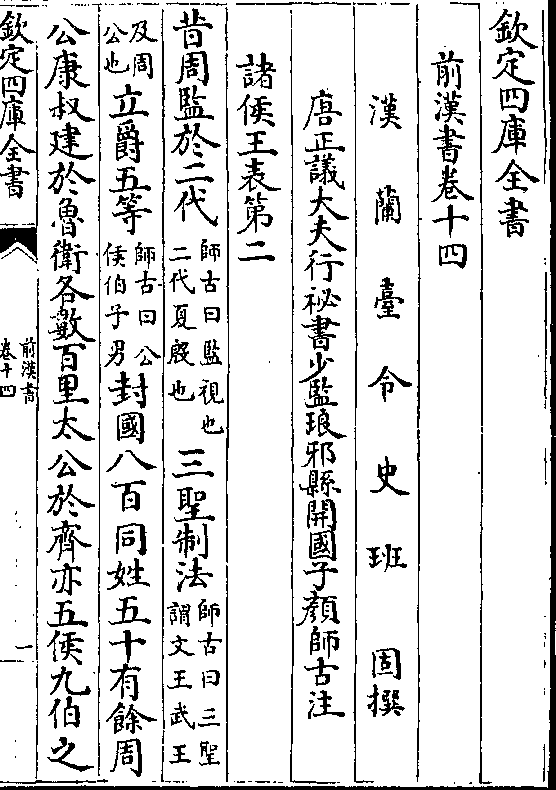 欽定四庫全書
前漢書卷十四
漢蘭臺令史班固撰
唐正議大夫行祕書少監琅邪縣開國子顔師古注
諸侯王表第二
昔周監於二代師古曰監視也二代夏殷也三聖制法師古曰三聖謂文王武王
及周公也立爵五等師古曰公侯伯子男封國八百同姓五十有餘周
公康叔建於魯衛各數百里太公於齊亦五侯九伯之
欽定四庫全書
前漢書
卷十四
一